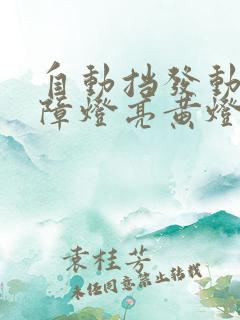 自動挡發動
障燈亮黃燈
袁桂芳
未经同意禁止转载